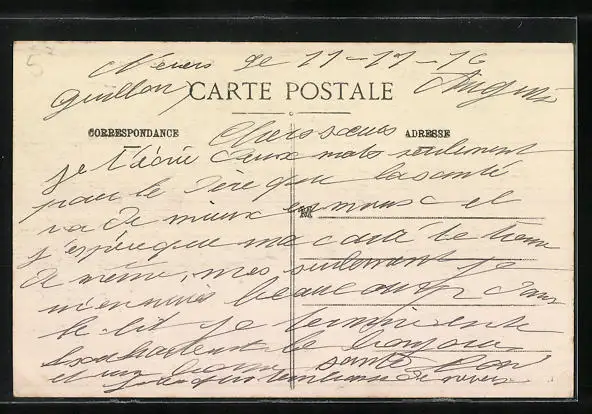 5
Nevers le 11-11-16
Guillon
CARTE POSTALE
CORRESPONDANCE
ADRESSE
Chers sœurs
je t'écrie deux mots seulement
pour te dire que la santé
va de mieux en mieux et
j'espère que ma carte te trouve
de même, mes seulement je
m'ennuies beaucoup dans
le lit je termine en te
souhaitant le bonjour
et une bonne santé ton